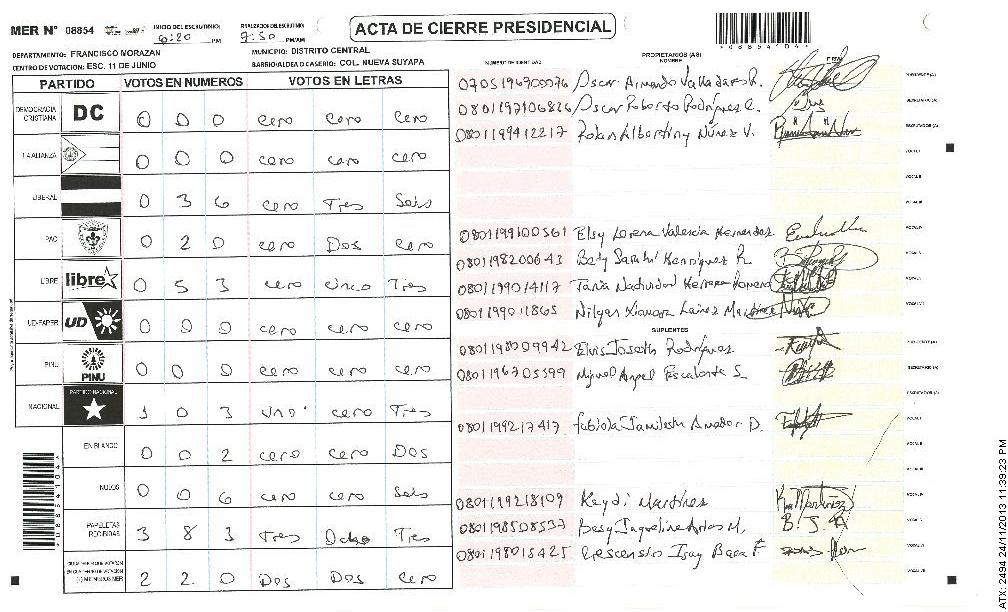 MER N° 08854 INICIO DEL ESCRUTINIO: 6:20 PM FINALIZACION DEL ESCRUTINIO: 7:50 PM/AM
ACTA DE CIERRE PRESIDENCIAL
DEPARTAMENTO: FRANCISCO MORAZAN MUNICIPIO: DISTRITO CENTRAL
CENTRO DE VOTACION: ESC. 11 DE JUNIO BARRIO/ALDEA O CASERIO: COL. NUEVA SUYAPA
PARTIDO VOTOS EN NUMEROS VOTOS EN LETRAS
DEMOCRACIA CRISTIANA DC 0 0 0 cero cero cero
LA ALIANZA 0 0 0 cero cero cero
LIBERAL 0 3 6 cero Tres Seis
PAC 0 2 0 cero Dos cero
LIBRE libre 0 5 3 cero cinco Tres
UD-FAPER UD 0 0 0 cero cero cero
PINU PINU 0 0 0 cero cero cero
NACIONAL PARTIDO NACIONAL 1 0 3 uno cero Tres
EN BLANCO 0 0 2 cero cero Dos
NULOS 0 0 6 cero cero Seis
PAPELETAS RECIBIDAS 3 8 3 Tres Ocho Tres
2 2 0 Dos Dos cero
NUMERO DE IDENTIDAD PROPIETARIOS (AS) NOMBRE FIRMA
Oscar Armando Valladares R. PRESIDENTE(A)
0801197106826 Oscar Roberto Rodríguez C. SECRETARIO (A)
0801199412217 Rolan Albertiny Núnez V. ESCRUTADOR (A)
VOCAL I
VOCAL II
VOCAL III
0801199100561 Elsy Lorena Valencia Hernandez VOCAL IV
0801198200643 Bety Sarahí Henriquez R. VOCAL V
0801199014117 Tania Herrera VOCAL VI
Lainez Martinez VOCAL VII
SUPLENTES
0801198009942 Elvis Joseth Rodríguez PRESIDENTE (A)
0801196705399 Miguel Angel Escalante S. SECRETARIO (A)
ESCRUTADOR (A)
0801199217417 Fabiola Jamileth Amador D. VOCAL I
VOCAL II
VOCAL III
0801199218109 Keydi Martínez VOCAL IV
0801198508537 Besy Jaqueline M. VOCAL V
0801198015425 Crescensio Isay Baca F VOCAL VI
VOCAL VII
ATX: 2494 24/11/2013 11:39:23 PM